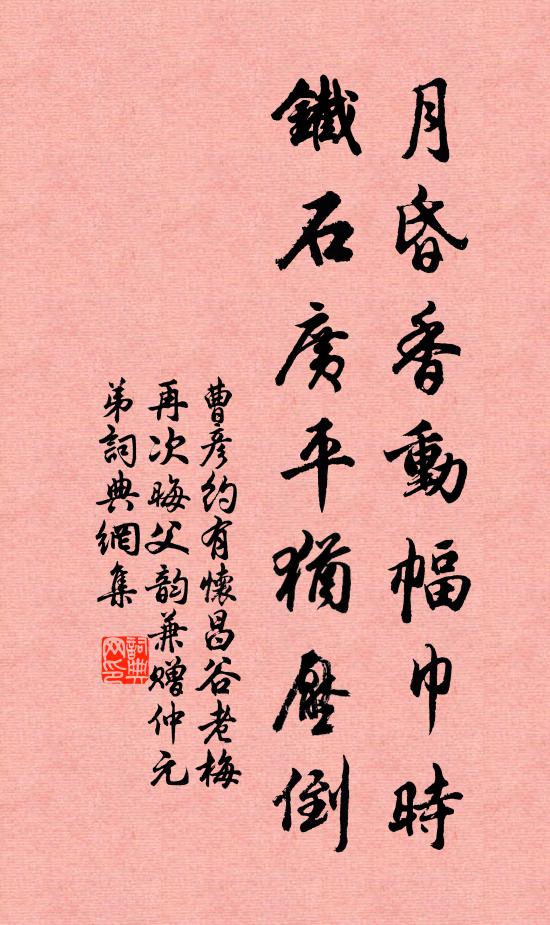 月昏香動幅巾時
鐵石廣平猶壓倒
曹彦約有懷昌谷老梅
再次晦父韵兼贈仲元
弟詞典網集
詞典网印